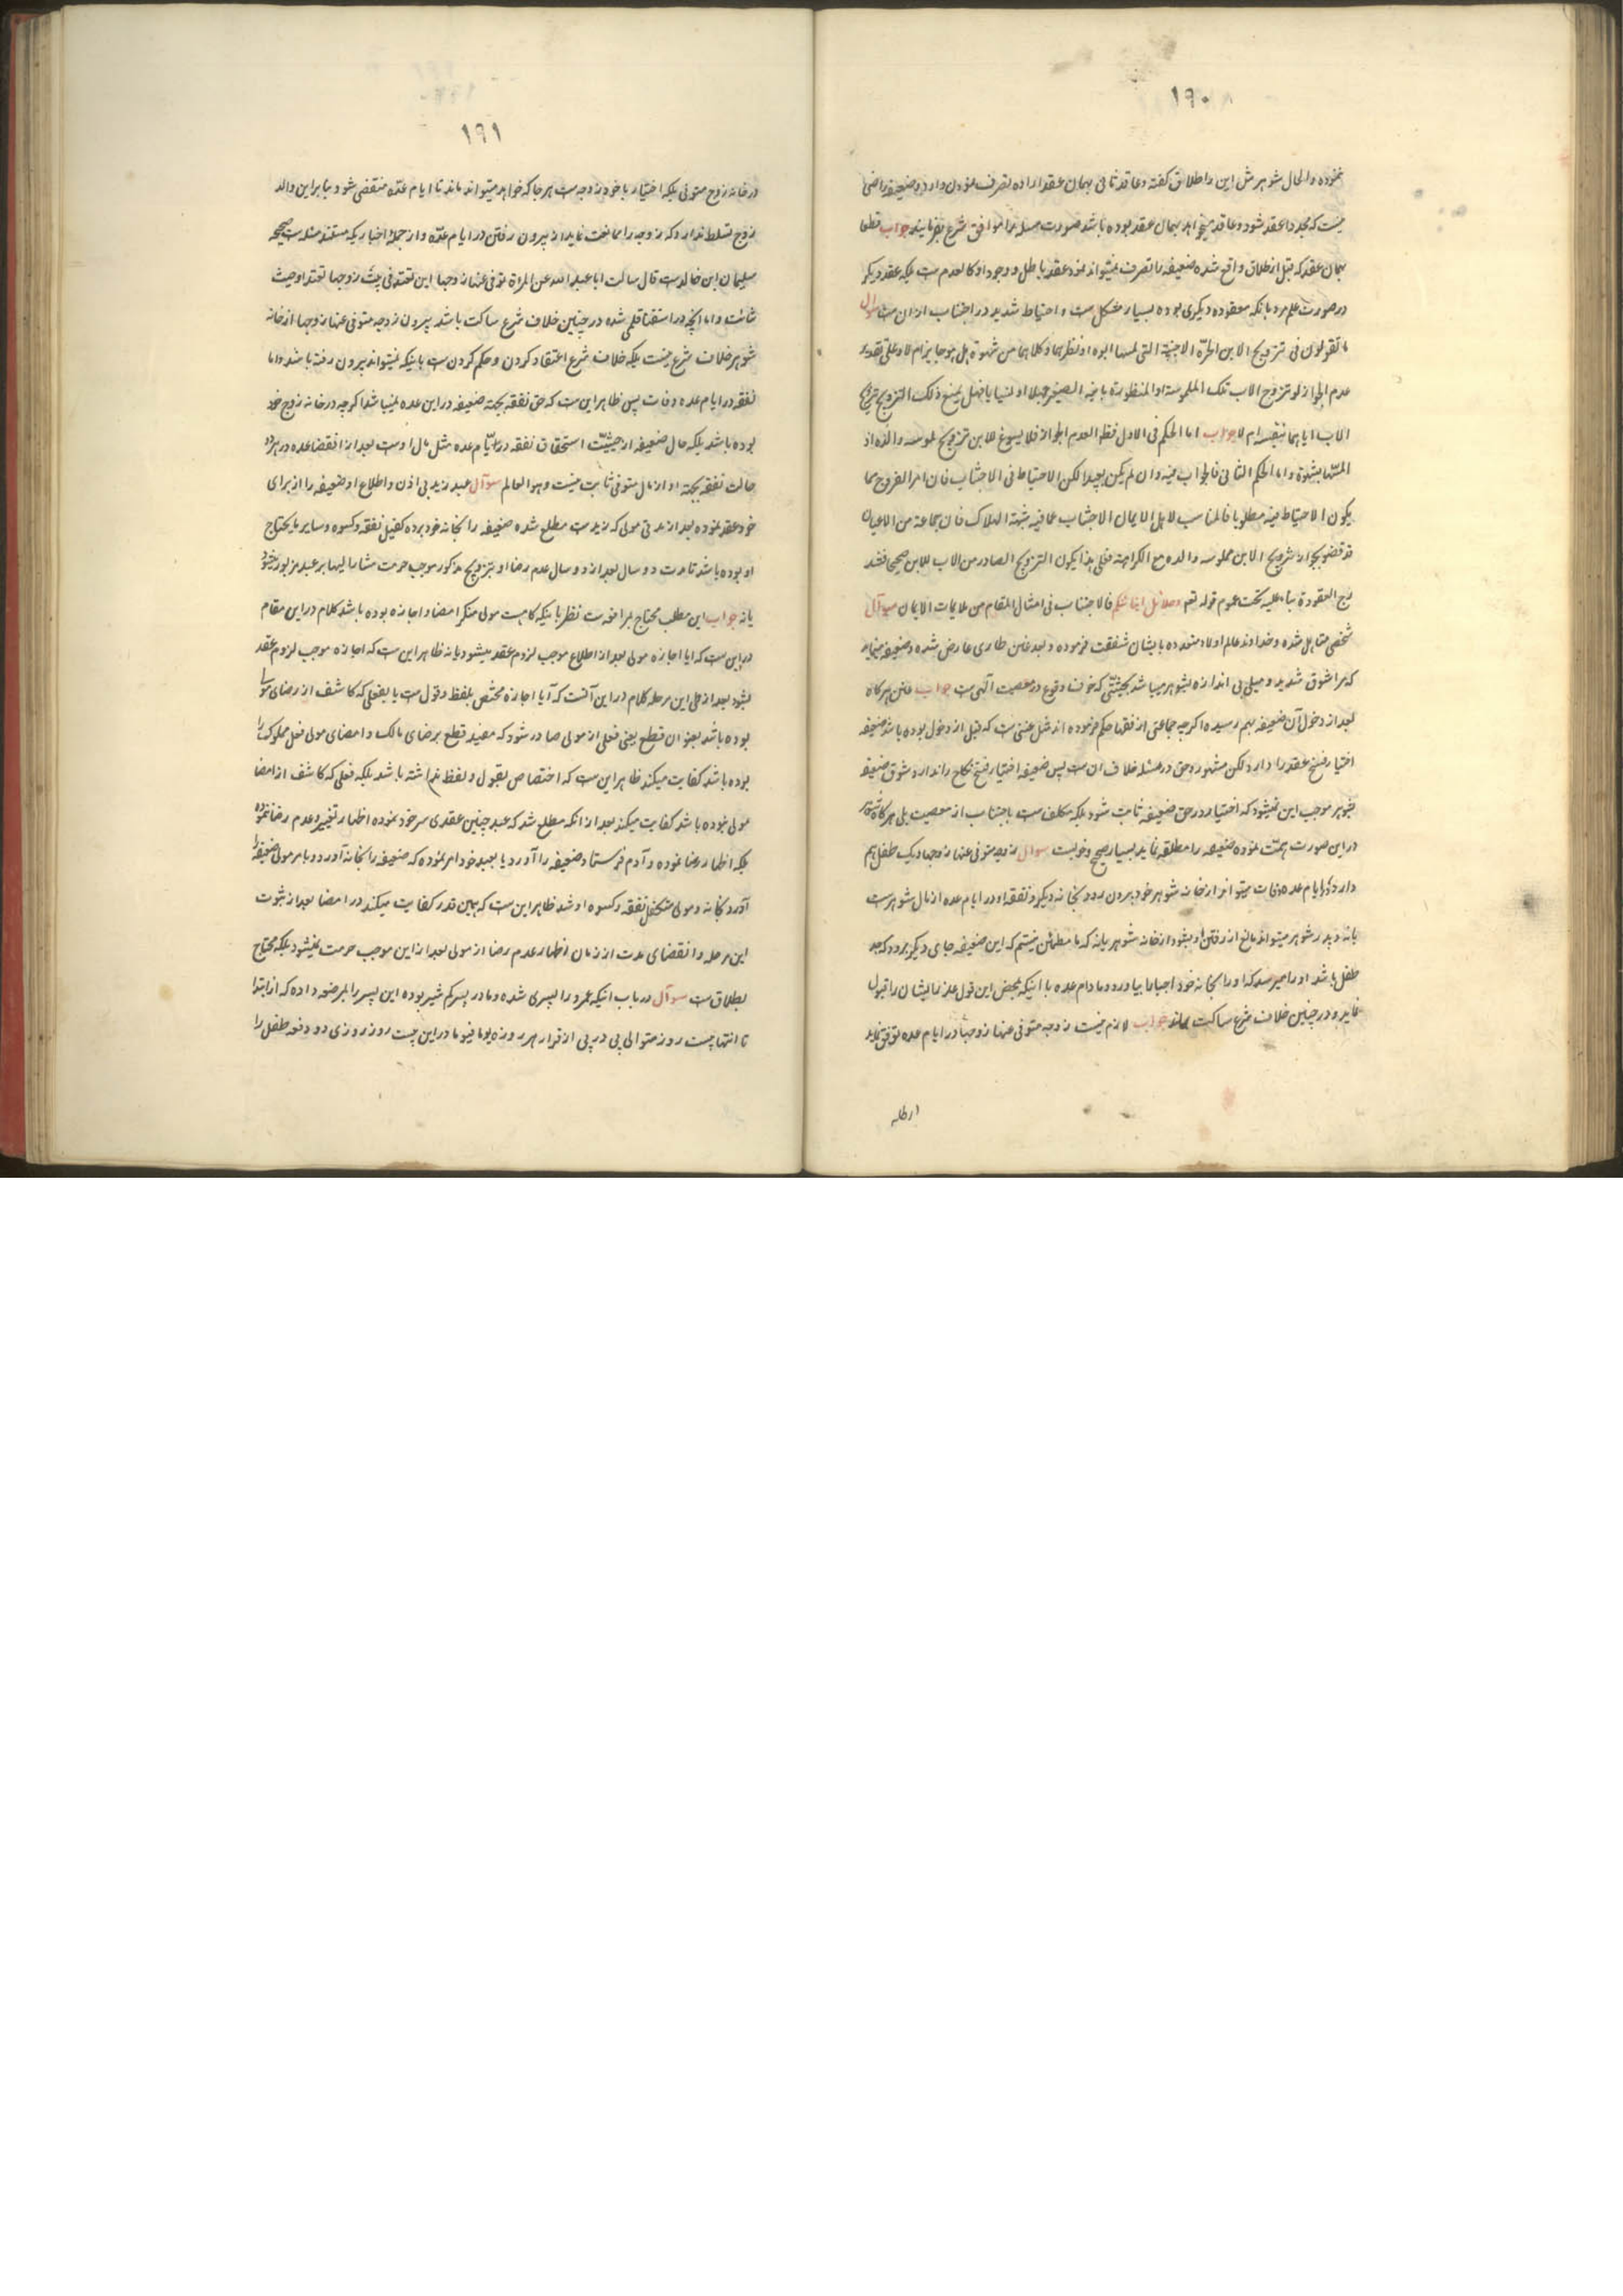 ۱۹۰
نموده والحال شوهرش این را طلاق گفته وعاقد ثانی بهمان عقد اراده تصرف نمودن دارد وضعیفه راضی
نیست که مجددا عقد شود وعاقد میخواهد بهمان عقد بوده باشد صورت مسئله را موافق شرع بفرمایند جواب قطعا
بهمان عقد که قبل از طلاق واقع شده ضعیفه را تصرف نمیتواند نمود عقد باطل و وجود او کالعدم ست بلکه عقد دیگر
در صورت علم مرد بانکه معقوده دیگری بوده بسیار مشکل ست و احتیاط شدید در اجتناب از ان ست سوال
ما تقولون فی تزویج الابن الحرّة الاجنبیّة التی لمسها ابوه او نظر بها وکلاهما من شهوة هل هو جایز ام لا وعلی تقدیر
عدم الجواز لو تزوج الاب تلک الملموسة او المنظورة بابنه الصغیر جهلا او نسیانا فهل یمنع ذلک التزویج تزویج
الاب ایاها بنفسه ام لا جواب اما الحکم فی الاول فنظر العدم الجواز فلا یسوغ للابن تزویج ملموسه والده اذ
المسّها بشهوة واما الحکم الثانی فالجواب فیه وان لم یکن بعیدا لکن الاحتیاط فی الاجتناب فان امر الفروج مما
یکون الاحتیاط فیه مطلوبا فالمناسب لاهل الایمان الاجتناب عما فیه شبهة الهلاک فان جماعة من الاعیان
قد قضو بجواز تزویج الابن ملموسه والده مع الکراهة فعلی هذا یکون التزویج الصادر من الاب للابن صحیحا فتند
رج المعقودة بناء علیه تحت عموم قوله تعم وحلائل ابنائکم فالاجتناب فی امثال المقام من ملایمات الایمان سوآل
شخصی متاهل شده وخداوند عالم اولاد متعدده بایشان شفقت فرموده وبعد عنن طاری عارض شده وضعیفه میماید
که مرا شوق شدید ومیلی بی اندازه بشوهر میباشد بحیثیّتی که خوف وقوع در معصیت آلهی ست جواب عنن هرکاه
بعد از دخول آن ضعیفه بهم رسیده اکرچه جماعتی از فقها حکم فرموده اند مثل عننی ست که قبل از دخول بوده باشد ضعیفه
اختیار فسخ عقد را دارد لکن مشهور وحق در مسئله خلاف ان ست پس ضعیفه اختیار فسخ نکاح را ندارد وشوق ضعیفه
بشوهر موجب این نمیشود که اختیار در حق ضعیفه ثابت شود بلکه مکلف ست باجتناب از معصیت بلی هرکاه شوهر
در این صورت همّت نموده ضعیفه را مطلقه نماید بسیار صحیح وخوبست سوال زوجه متوفی عنها زوجها ویک طفل هم
دارد در ایام عده وفات میتواند از خانه شوهر خود بیرون رود بخانه دیگر ونفقه او در ایام عده از مال شوهر ست
یا نه وپدر شوهر میتواند مانع از رفتن او بشود از خانه شوهر یا نه که ما مطمئن نیستم که این ضعیفه جای دیگر برود که جد
طفل باشد او را میرسد که او را بخانه خود اجبارا بیاورد ومادام عده با اینکه بمحض این قول عذر را ایشان را قبول
نماید ودر چنین خلاف شرع ساکت بماند جواب لازم نیست زوجه متوفی عنها زوجها در ایام عده توقف نماید
۱۹۱
در خانه زوج متوفی بلکه اختیار با خود زوجه ست هر جا که خواهد میتواند ماند تا ایام عدّه منقضی شود بنابراین والد
زوج تسلط ندارد که زوجه را ممانعت نماید از بیرون رفتن در ایام عدّه واز جملۀ اخباریکه مستند مسئله ست صحیحه
سلیمان ابن خالد ست قال سالت ابا عبد الله عن المراة توفی عنها زوجها این تعتد فی بیت زوجها تعتد او حیث
شائت واما انچه در استفتا قلمی شده در چنین خلاف شرع ساکت باشد بیرون زوجه متوفی عنها زوجها از خانه
شوهر خلاف شرع نیست بلکه خلاف شرع اعتقاد کردن وحکم کردن ست باینکه نمیتواند بیرون رفته باشد واما
نفقه در ایام عده وفات پس ظاهر این ست که حق نفقه بجهة ضعیفه در این عده نمیباشد اکرچه در خانه زوج خود
بوده باشد بلکه حال ضعیفه از حیثیّت استحقاق نفقه در ایّام عده مثل حال اوست بعد از انقضا عده در هر دو
حالت نفقه بجهة او از مال متوفی ثابت نیست وهو العالم سوآل عبد زید بی اذن واطلاع او ضعیفه را از برای
خود عقد نموده بعد از مدتی مولی که زید ست مطلع شده ضعیفه را بخانه خود برده کفیل نفقه وکسوه وسایر مایحتاج
او بوده باشد تا مدت دو سال بعد از دو سال عدم رضا او بتزویج مذکور موجب حرمت مشارالیها بر عبد مزبور میشود
یا نه جواب این مطلب محتاج بمرافعه ست نظر باینکه کاهست مولی منکر امضا واجازه بوده باشد کلام در این مقام
در این ست که ایا اجازه مولی بعد از اطلاع موجب لزوم عقد میشود یا نه ظاهر این ست که اجازه موجب لزوم عقد
بشود بعد از طی این مرحله کلام در این آنست که آیا اجازه مختص بلفظ وقول ست یا بفعلی که کاشف از رضای مولی
بوده باشد بعنوان قطع یعنی فعلی از مولی صادر شود که مفید قطع برضای مالک وامضای مولی فعل مملوک را
بوده باشد کفایت میکند ظاهر این ست که اختصاص بقول ولفظ نداشته باشد بلکه فعلی که کاشف از امضا
مولی بوده باشد کفایت میکند بعد از انکه مطلع شد که عبد چنین عقدی سر خود نموده اظهار تغییر وعدم رضا ننموده
بلکه اظهار رضا نموده و آدم فرستاد وضعیفه را آورد یا بعبد خود امر نموده که ضعیفه را بخانه آورد وبامر مولی ضعیفه را
آورد بخانه ومولی متکفل نفقه وکسوه او شد ظاهر این ست که همین قدر کفایت میکند در امضا بعد از ثبوت
این مرحله وانقضای مدت از زمان اظهار عدم رضا از مولی بعد از این موجب حرمت نمیشود بلکه محتاج
بطلاق ست سوآل در باب اینکه عمرو را پسری شده ومادر پسر کم شیر بوده این پسر را بمرضعه داده که از ابتدا
تا انتها بیست روز متوالی پی در پی از قرار هر روزه یوما فیوما در این بیست روز روزی دو دفعه طفل را